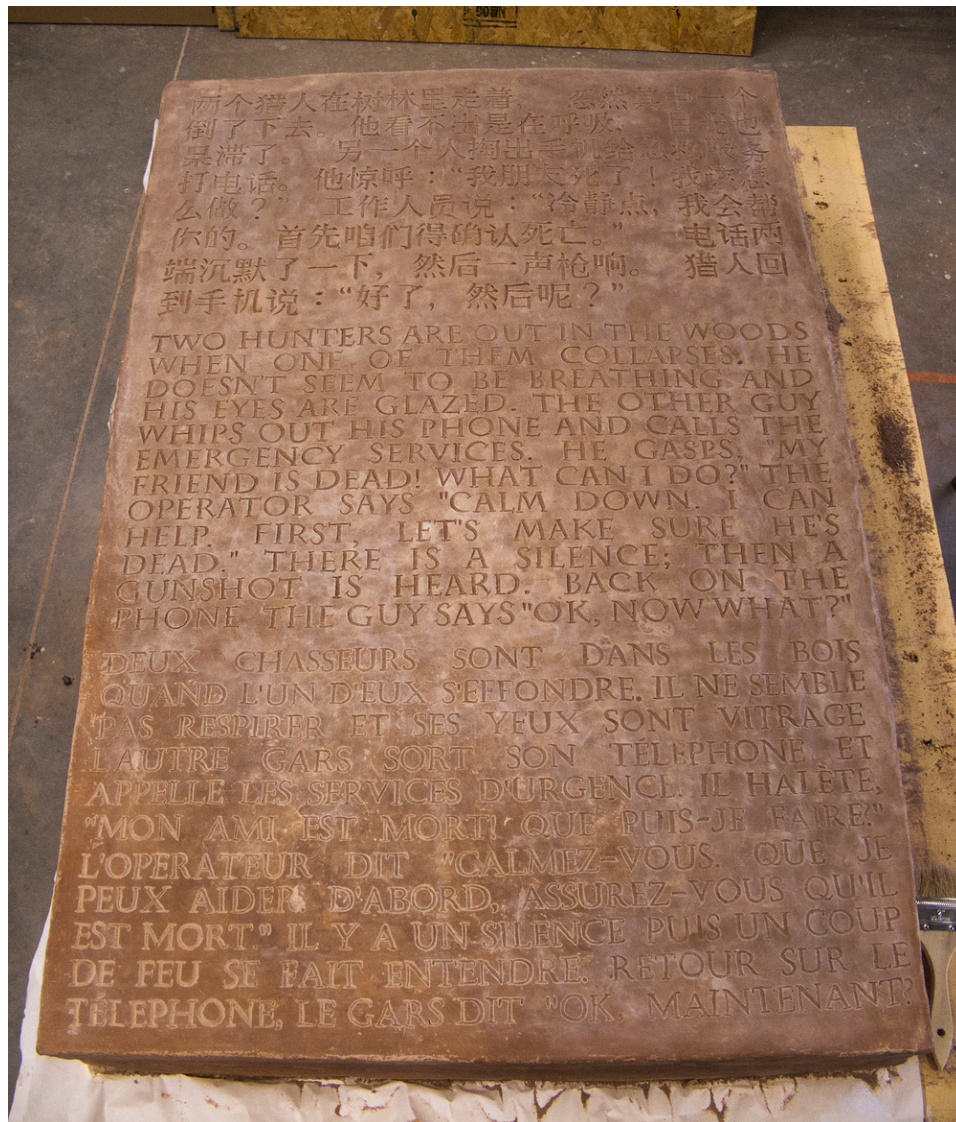 两个猎人在树林里走着， 忽然其中一个
倒了下去。他看不出是在呼吸， 目光也
呆滞了。 另一个人掏出手机给急救服务
打电话。 他惊呼：“我朋友死了！我该怎
么做？” 工作人员说：“冷静点，我会帮
你的。首先咱们得确认死亡。” 电话两
端沉默了一下， 然后一声枪响。 猎人回
到手机说：“好了，然后呢？”
TWO HUNTERS ARE OUT IN THE WOODS
WHEN ONE OF THEM COLLAPSES. HE
DOESN'T SEEM TO BE BREATHING AND
HIS EYES ARE GLAZED. THE OTHER GUY
WHIPS OUT HIS PHONE AND CALLS THE
EMERGENCY SERVICES. HE GASPS, "MY
FRIEND IS DEAD! WHAT CAN I DO?" THE
OPERATOR SAYS "CALM DOWN. I CAN
HELP. FIRST, LET'S MAKE SURE HE'S
DEAD." THERE IS A SILENCE; THEN A
GUNSHOT IS HEARD. BACK ON THE
PHONE THE GUY SAYS "OK, NOW WHAT?"
DEUX CHASSEURS SONT DANS LES BOIS
QUAND L'UN D'EUX S'EFFONDRE. IL NE SEMBLE
PAS RESPIRER ET SES YEUX SONT VITRAGE
L'AUTRE GARS SORT SON TÉLEPHONE ET
APPELLE LES SERVICES D'URGENCE. IL HALÈTE,
"MON AMI EST MORT! QUE PUIS-JE FAIRE?"
L'OPERATEUR DIT "CALMEZ-VOUS. QUE JE
PEUX AIDER. D'ABORD, ASSUREZ-VOUS QU'IL
EST MORT." IL Y A UN SILENCE PUIS UN COUP
DE FEU SE FAIT ENTENDRE. RETOUR SUR LE
TÉLEPHONE, LE GARS DIT "OK, MAINTENANT?